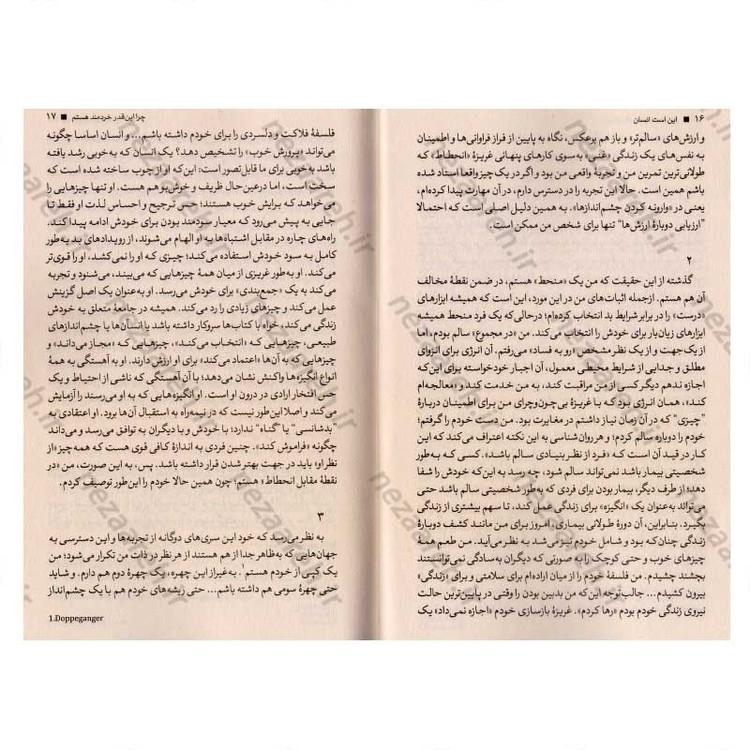 ۱۶ ■ این است انسان
و ارزش‌های «سالم‌تر» و باز هم برعکس، نگاه به پایین از فراز فراوانی‌ها و اطمینان
به نفس‌های یک زندگی «غنی» به سوی کارهای پنهانی غریزهٔ «انحطاط» که
طولانی‌ترین تمرین من و تجربهٔ واقعی من بود و اگر در یک چیز واقعا استاد شده
باشم همین است. حالا این تجربه را در دسترس دارم، در آن مهارت پیدا کرده‌ام،
یعنی در «وارونه کردن چشم‌اندازها». به همین دلیل اصلی است که احتمالا
"ارزیابی دوبارهٔ ارزش‌ها" تنها برای شخص من ممکن است.
۲
گذشته از این حقیقت که من یک «منحط» هستم، در ضمن نقطهٔ مخالف
آن هم هستم. ازجمله اثبات‌های من در این مورد، این است که همیشه ابزارهای
«درست» را در برابر شرایط بد انتخاب کرده‌ام؛ درحالی‌که یک فرد منحط همیشه
ابزارهای زیان‌بار برای خودش را انتخاب می‌کند. من «در مجموع» سالم بودم، اما
از یک جهت و از یک نظر مشخص «رو به فساد» می‌رفتم. آن انرژی برای انزوای
مطلق و جدایی از شرایط محیطی معمول، آن اجبار خودخواسته برای این‌که
اجازه ندهم دیگر کسی از من مراقبت کند، به من خدمت کند و «معالجه‌ام
کند»، همان انرژی بود که با غریزهٔ بی‌چون‌وچرای من برای اطمینان دربارهٔ
"چیزی" که در آن زمان نیاز داشتم در مغایرت بود. من دست خودم را گرفتم؛
خودم را دوباره سالم کردم؛ و هر روان‌شناسی به این نکته اعتراف می‌کند که این
کار در قید آن است که «فرد از نظر بنیادی سالم باشد». کسی که به‌طور
شخصیتی بیمار باشد نمی‌تواند سالم شود، چه رسد به این‌که خودش را شفا
دهد؛ از طرف دیگر، بیمار بودن برای فردی که به‌طور شخصیتی سالم باشد حتی
می‌تواند به‌عنوان یک «انگیزه» برای زندگی عمل کند، تا سهم بیشتری از زندگی
بگیرد. بنابراین، آن دورهٔ طولانی بیماری، امروز برای من مانند کشف دوبارهٔ
زندگی چنان‌که بود و شامل خودم نیز می‌شد به نظر می‌آید. من طعم همهٔ
چیزهای خوب و حتی کوچک را به صورتی که دیگران به‌سادگی نمی‌توانستند
بچشند چشیدم. من فلسفهٔ خودم را از میان اراده‌ام برای سلامتی و برای «زندگی»
بیرون کشیدم... جالب‌توجه این‌که من بدبین بودن را وقتی در پایین‌ترین حالت
نیروی زندگی خودم بودم «رها کردم». غریزهٔ بازسازی خودم «اجازه نمی‌داد» یک
چرا این‌قدر خردمند هستم ■ ۱۷
فلسفهٔ فلاکت و دلسردی را برای خودم داشته باشم... و انسان اساسا چگونه
می‌تواند «پرورش خوب» را تشخیص دهد؟ یک انسان که به‌خوبی رشد یافته
باشد به‌خوبی برای ما قابل‌تصور است؛ این‌که او از چوب ساخته شده است که
سخت است، اما درعین‌حال ظریف و خوش‌بو هم هست. او تنها چیزهایی را
می‌خواهد که برایش خوب هستند؛ حس ترجیح و احساس لذت او فقط تا
جایی به پیش می‌رود که معیار سودمند بودن برای خودش ادامه پیدا کند.
راه‌های چاره در مقابل اشتباه‌ها به او الهام می‌شوند، از رویدادهای بد به‌طور
کامل به سود خودش استفاده می‌کند؛ چیزی که او را نمی‌کشد، او را قوی‌تر
می‌کند. او به‌طور غریزی از میان همهٔ چیزهایی که می‌بیند، می‌شنود و تجربه
می‌کند به یک «جمع‌بندی» برای خودش می‌رسد. او به‌عنوان یک اصل گزینش
عمل می‌کند و چیزهای زیادی را رد می‌کند. همیشه در جامعهٔ متعلق به خودش
زندگی می‌کند، خواه با کتاب‌ها سروکار داشته باشد یا انسان‌ها یا چشم‌اندازهای
طبیعی، چیزهایی که «انتخاب می‌کند»، چیزهایی که «مجاز می‌داند» و
چیزهایی که به آن‌ها «اعتماد می‌کند» برای او ارزش دارند. او به آهستگی به همهٔ
انواع انگیزه‌ها واکنش نشان می‌دهد؛ با آن آهستگی که ناشی از احتیاط و یک
حس افتخار ارادی در درون او است. او انگیزه‌هایی که به او می‌رسند را آزمایش
می‌کند و اصلا این‌طور نیست که در نیمه‌راه به استقبال آن‌ها برود. او اعتقادی به
"بدشانسی" یا "گناه" ندارد؛ با خودش و با دیگران به توافق می‌رسد و می‌داند
چگونه «فراموش کند». چنین فردی به اندازهٔ کافی قوی هست که همه‌چیز «از
نظر او» باید در جهت بهتر شدن قرار داشته باشد. پس، به این صورت، من «در
نقطهٔ مقابل انحطاط» هستم؛ چون همین حالا خودم را این‌طور توصیف کردم.
۳
به نظر می‌رسد که خود این سری‌های دوگانه از تجربه‌ها و این دسترسی به
جهان‌هایی که به‌ظاهر جدا از هم هستند از هر نظر در ذات من تکرار می‌شود؛ من
یک کپی از خودم هستم¹. به‌غیر از این چهره، یک چهرهٔ دوم هم دارم. و شاید
حتی چهرهٔ سومی هم داشته باشم... حتی ریشه‌های خودم هم با یک چشم‌انداز
1.Doppeganger
nezaareh.ir